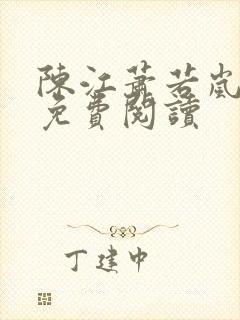 陳江蕭若嵐
免費閱讀
丁建中